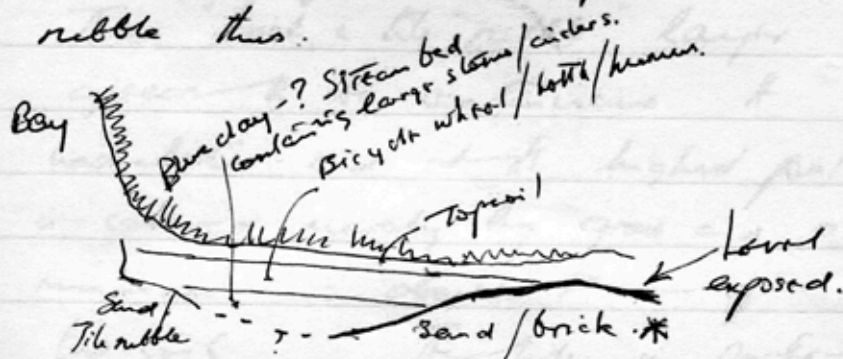 rubble thus.
Bay
Blue clay - ? Stream bed
containing large stones/cinders.
Bicycle wheel / bottle / humus.
Topsoil
Level
exposed.
Sand
Tile rubble
? -
sand / brick. *